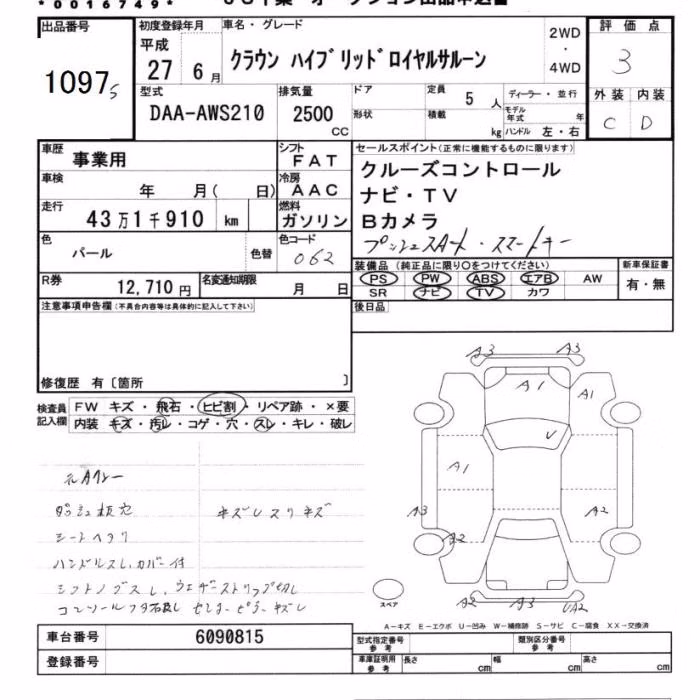 *0016749*
出品番号
1097s
初度登録年月
平成
27 6月
車名・グレード
クラウン ハイブリッドロイヤルサルーン
2WD
・
4WD
評価点
3
外装 内装
C D
型式
DAA-AWS210
排気量
2500
CC
ドア
形状
定員
5 人
積載
kg
ディーラー・並行
モデル年式 年
ハンドル 左・右
車歴
事業用
シフト
FAT
車検
年 月( 日)
冷房
AAC
走行
43万1千910 km
燃料
ガソリン
色
パール
色替
色コード
062
R券
12,710円
名変通知期限
月 日
セールスポイント(正常に機能するものに限ります)
クルーズコントロール
ナビ・TV
Bカメラ
プッシュスタート・スマートキー
装備品 (純正品に限り○をつけてください)
PS PW ABS エアB AW
SR ナビ TV カワ
新車保証書
有・無
後日品
注意事項申告欄(不具合内容等は具体的に記入して下さい)
修復歴 有〔箇所 〕
検査員記入欄
FW キズ・飛石・ヒビ割・リペア跡・×要
内装 キズ・汚レ・コゲ・穴・スレ・キレ・破レ
キズレスリキズ
シートヘタリ
ハンドルスレ、カバー付
A3 A3
A1
A1
U
A1
A3
A2
A2
A2 A3 UA2
スペア
A－キズ E－エクボ U－凹み W－補修跡 S－サビ C－腐食 XX－交換済
車台番号
6090815
登録番号
型式指定番号
参考
類別区分番号
参考
車庫証明用
参考
長さ cm
幅 cm
高さ cm